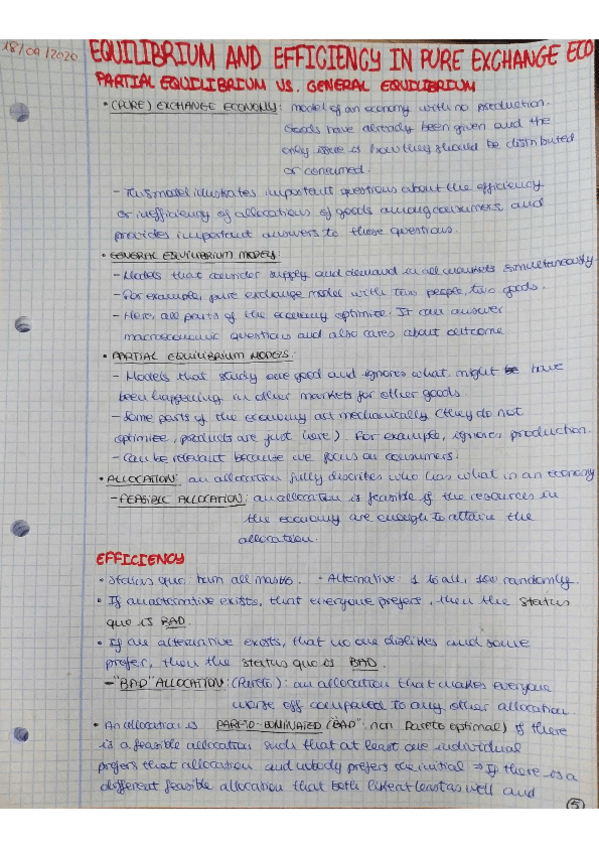 18/09/2020
EQUILIBRIUM AND EFFICIENCY IN PURE EXCHANGE ECO
PARTIAL EQUILIBRIUM VS. GENERAL EQUILIBRIUM
• (PURE) EXCHANGE ECONOMY: model of an economy with no production.
Goods have already been given and the
only issue is how they should be distributed
or consumed.
- This model illustrates important questions about the efficiency
or inefficiency of allocations of goods among consumers and
provides important answers to these questions.
• GENERAL EQUILIBRIUM MODELS:
- Models that consider supply and demand in all markets simultaneously.
- For example, pure exchange model with two people, two goods.
- Here, all parts of the economy optimize. It can answer
macroeconomic questions and also cares about outcome
• PARTIAL EQUILIBRIUM MODELS:
- Models that study one good and ignores what might have
been happening in other markets for other goods.
- Some parts of the economy act mechanically (they do not
optimize, products are just here). For example, ignores production.
- Can be relevant because we focus on consumers.
• ALLOCATION: an allocation fully describes who has what in an economy
- FEASIBLE ALLOCATION: an allocation is feasible if the resources in
the economy are enough to attain the
allocation.
EFFICIENCY
• Status quo: burn all masks. • Alternative: 1 to all, 100 randomly.
• If an alternative exists, that everyone prefers, then the status
quo is BAD.
• If an alternative exists, that no one dislikes and some
prefer, then the status quo is BAD.
- "BAD" ALLOCATION: (Pareto): an allocation that makes everyone
worse off compared to any other allocation.
• An allocation is PARETO-DOMINATED ("BAD", non Pareto optimal) if there
is a feasible allocation such that at least one individual
prefers that allocation and nobody prefers the initial ⇒ If there is a
different feasible allocation that both like at least as well and
5